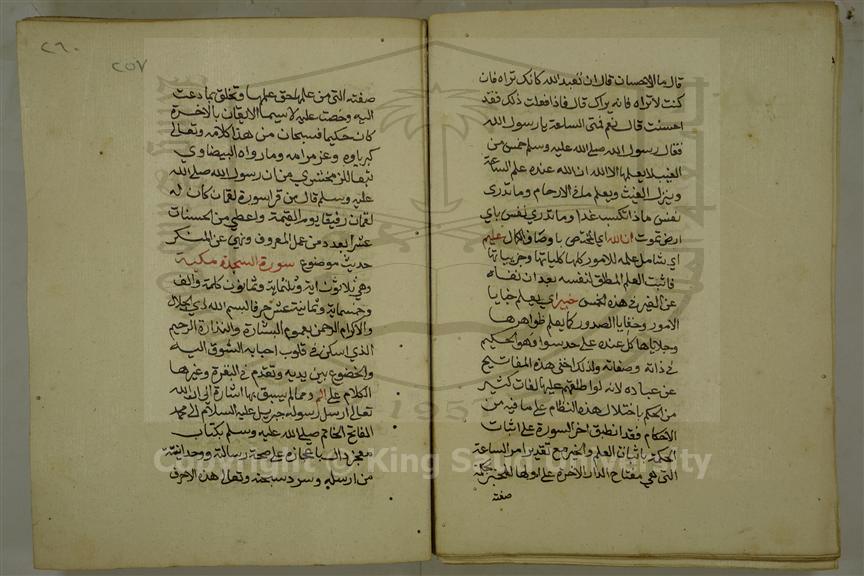 قال ما الاحسان قال ان تعبد الله كانك تراه فان
كنت لا تراه فانه يراك قال فاذا فعلت ذلك فقد
احسنت قال نعم فمتى الساعة يا رسول الله
فقال رسول الله صلى الله عليه وسلم خمس من
الغيب لا يعلمها الا الله ان الله عنده علم الساعة
وينزل الغيث ويعلم ما في الارحام وما تدرى
نفس ماذا تكسب غدا وما تدرى نفس باي
ارض تموت ان الله اي المختص باوصاف الكمال عليم
اي شامل علمه للامور كلها كلياتها وجزيياتها
فاثبت العلم المطلق لنفسه بعد ان نفاه
عن الغير في هذه الخمس خبير اي يعلم خبايا
الامور وخفايا الصدور كما يعلم ظواهرها
وجلاياها كل عنده على حد سوا وهو الحكيم
في ذاته وصفاته ولذلك اخفى هذه المفاتيح
عن عباده لانه لو اطلعهم عليها لفات كثير
من الحكم باختلال هذه النظام على ما فيه من
الاحكام فقد انطبق اخر السورة على اثبات
الحكمة باثبات العلم والخير مع تقدير امر الساعة
التي هي مفتاح الدار الاخرة على اولها المخبر بحكمة
صفته
٢٦٠
٢٥٧
صفته التي من علمها حق علمها وتخلق بما دعت
اليه وحضت عليه لا سيما الايقان بالاخرة
كان حكيما فسبحان من هذا كلامه وتعالى
كبرياوه وعز مرامه وما رواه البيضاوي
تبعا للزمخشري من ان رسول الله صلى الله
عليه وسلم قال من قرا سورة لقمان كان له
لقمان رفيقا يوم القيمة واعطى من الحسنات
عشرا بعدد من عمل المعروف ونهى عن المنكر
حديث موضوع سورة السجدة مكية
وهي ثلاثون اية وثلثماية وثمانون كلمة والف
وخمسماية وثمانية عشر حرفا بسم الله ذي الجلال
والاكرام الرحمن بعموم البشارة والنذارة الرحيم
الذي اسكن في قلوب احبابه الشوق اليه
والخضوع بين يديه وتقدم في البقرة وغيرها
الكلام على الم ومما لم يسبق بها اشارة الى ان الله
تعالى ارسل رسوله جبريل عليه السلام الى محمد
الفاتح الخاتم صلى الله عليه وسلم بكتاب
معجز دال باعجازه على صحة رسالته ووحدانية
من ارسله وسرد سبحنه وتعالى هذه الاحرف
Copyright © King Saud University
1957